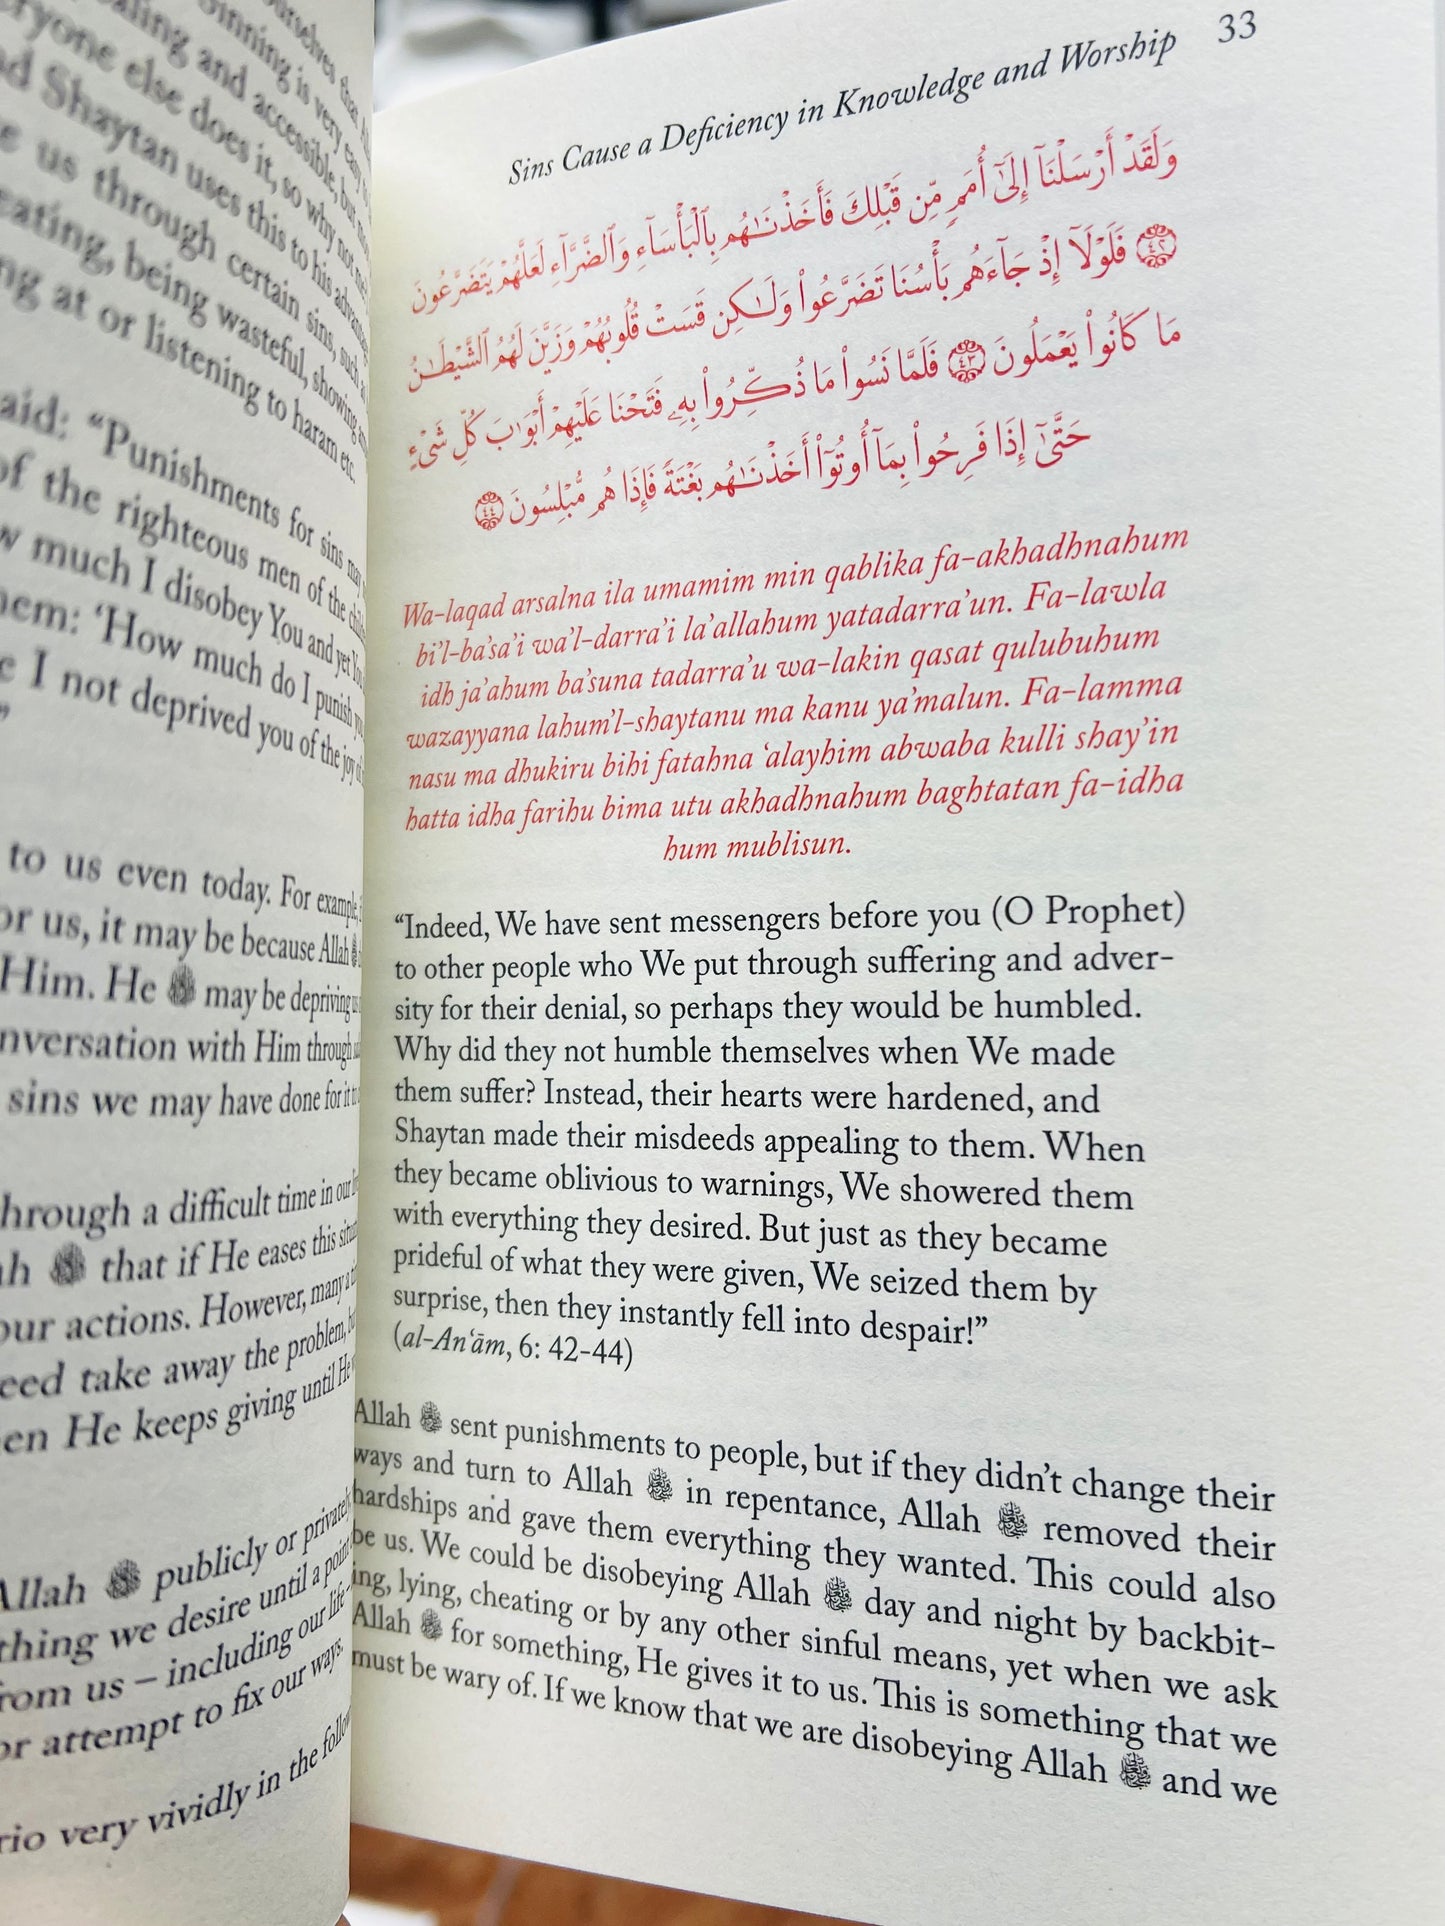 ourselves that
sinning is very easy
aling and accessible, but
eryone else does it, so why not me
d Shaytan uses this to his advantage
us through certain sins, such as
eating, being wasteful, showing
ng at or listening to haram etc.
aid: “Punishments for sins may
of the righteous men of the
w much I disobey You and yet You
hem: ‘How much do I punish you
e I not deprived you of the joy of
”
to us even today. For example,
or us, it may be because Allah ﷻ
Him. He ﷻ may be depriving us
nversation with Him through
sins we may have done for it to
hrough a difficult time in our
ah ﷻ that if He eases this
our actions. However, many a
eed take away the problem,
en He keeps giving until He
Allah ﷻ publicly or privately
thing we desire until a point
from us – including our life –
or attempt to fix our ways.
rio very vividly in the
Sins Cause a Deficiency in Knowledge and Worship 33
وَلَقَدْ أَرْسَلْنَآ إِلَىٰٓ أُمَمٍ مِّن قَبْلِكَ فَأَخَذْنَـٰهُم بِٱلْبَأْسَآءِ وَٱلضَّرَّآءِ لَعَلَّهُمْ يَتَضَرَّعُونَ
٤٢ فَلَوْلَآ إِذْ جَآءَهُم بَأْسُنَا تَضَرَّعُوا۟ وَلَـٰكِن قَسَتْ قُلُوبُهُمْ وَزَيَّنَ لَهُمُ ٱلشَّيْطَـٰنُ
مَا كَانُوا۟ يَعْمَلُونَ ٤٣ فَلَمَّا نَسُوا۟ مَا ذُكِّرُوا۟ بِهِۦ فَتَحْنَا عَلَيْهِمْ أَبْوَٰبَ كُلِّ شَىْءٍ
حَتَّىٰٓ إِذَا فَرِحُوا۟ بِمَآ أُوتُوٓا۟ أَخَذْنَـٰهُم بَغْتَةً فَإِذَا هُم مُّبْلِسُونَ ٤٤
Wa-laqad arsalna ila umamim min qablika fa-akhadhnahum
bi’l-ba’sa’i wa’l-darra’i la’allahum yatadarra’un. Fa-lawla
idh ja’ahum ba’suna tadarra’u wa-lakin qasat qulubuhum
wazayyana lahum’l-shaytanu ma kanu ya’malun. Fa-lamma
nasu ma dhukiru bihi fatahna ‘alayhim abwaba kulli shay’in
hatta idha farihu bima utu akhadhnahum baghtatan fa-idha
hum mublisun.
“Indeed, We have sent messengers before you (O Prophet)
to other people who We put through suffering and adver-
sity for their denial, so perhaps they would be humbled.
Why did they not humble themselves when We made
them suffer? Instead, their hearts were hardened, and
Shaytan made their misdeeds appealing to them. When
they became oblivious to warnings, We showered them
with everything they desired. But just as they became
prideful of what they were given, We seized them by
surprise, then they instantly fell into despair!”
(al-An‘ām, 6: 42-44)
Allah ﷻ sent punishments to people, but if they didn’t change their
ways and turn to Allah ﷻ in repentance, Allah ﷻ removed their
hardships and gave them everything they wanted. This could also
be us. We could be disobeying Allah ﷻ day and night by backbit-
ing, lying, cheating or by any other sinful means, yet when we ask
Allah ﷻ for something, He gives it to us. This is something that we
must be wary of. If we know that we are disobeying Allah ﷻ and we